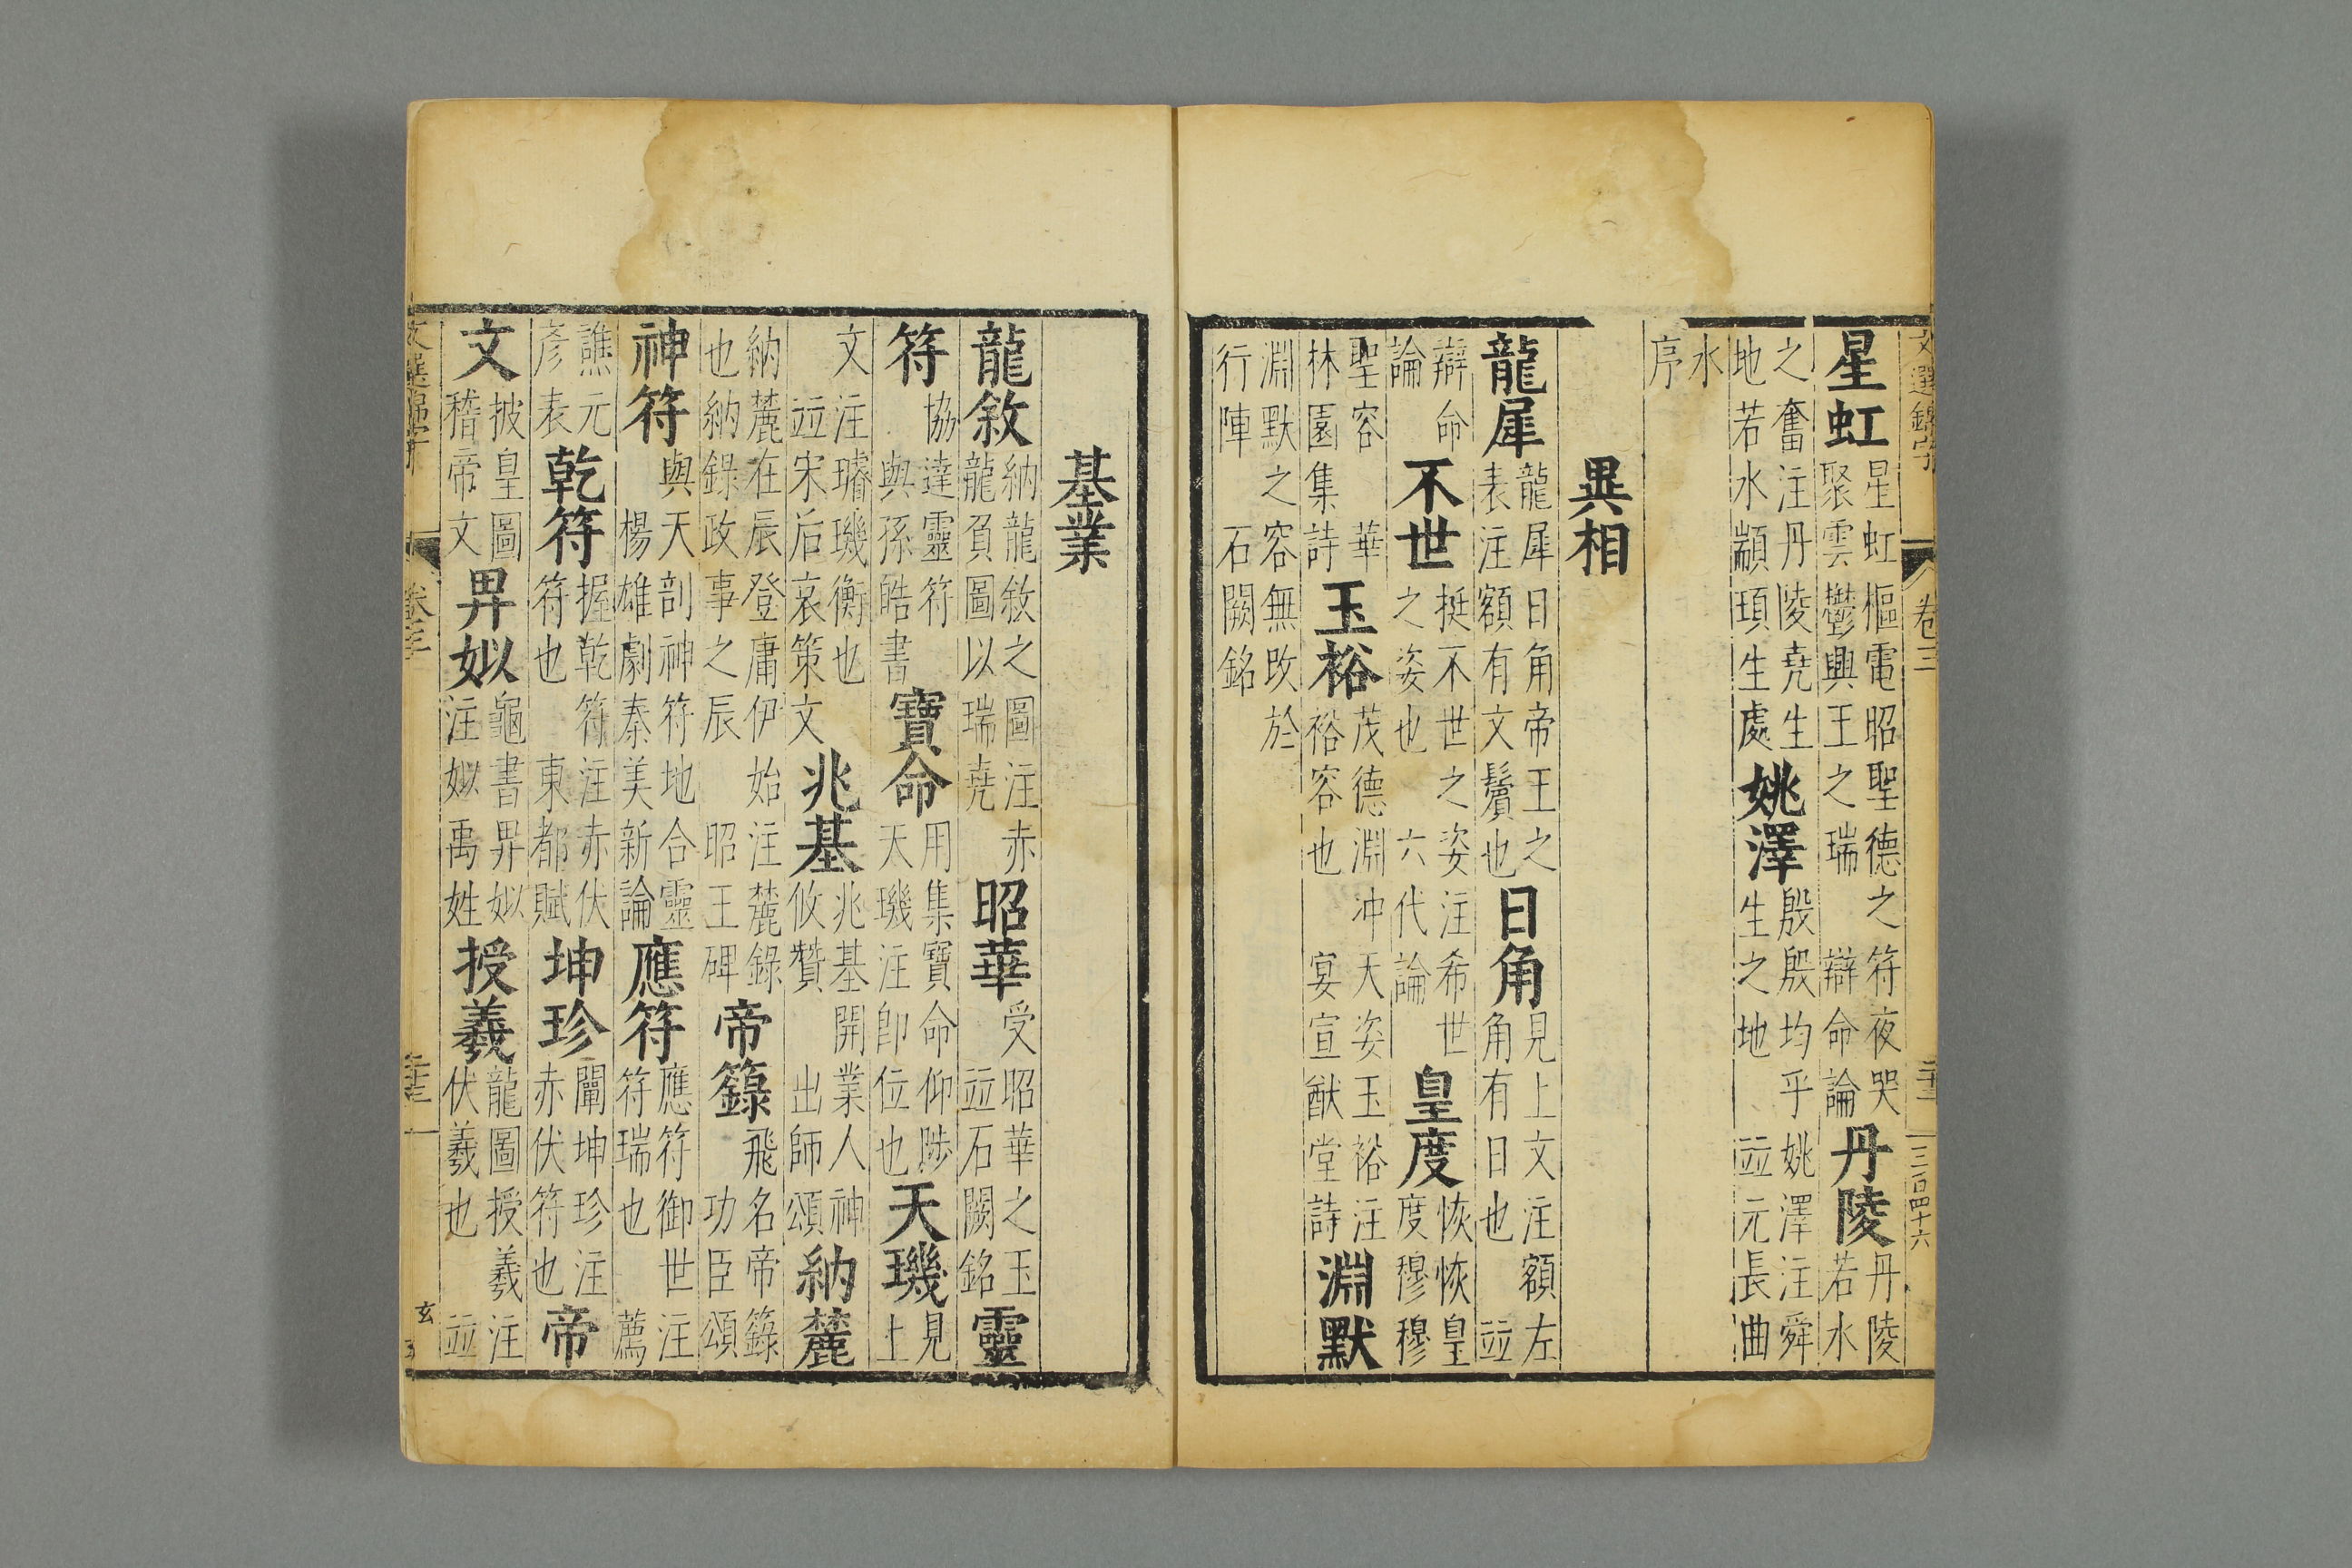 文選錦字 卷三 二十三 三百四十六
星虹 星虹樞電昭聖德之符夜哭聚雲鬱興王之瑞 辯命論 丹陵 丹陵若水
之奮注丹陵堯生地若水顓頊生處 姚澤 殷殷均乎姚澤注舜生之地 並元長曲
水序
異相
龍犀 龍犀日角帝王之表注額有文鬢也 日角 見上文注額左角有日也 並
辯命論 不世 挺不世之姿注希世之姿也 六代論 皇度 恢恢皇度穆穆
聖容 華林園集詩 玉裕 茂德淵冲天姿玉裕注裕容也 宴宣猷堂詩 淵默
淵默之容無改於行陣 石闕銘
基業
龍敘 納龍敘之圖注赤龍負圖以瑞堯 昭華 受昭華之玉 並石闕銘 靈
符 協達靈符 與孫皓書 寶命 用集寶命仰陟天璣注即位也 天璣 見上
文注璿璣衡也 並宋后哀策文 兆基 兆基開業人神攸贊 出師頌 納麓
納麓在辰登庸伊始注麓錄也納錄政事之辰 昭王碑 帝籙 飛名帝籙 功臣頌
神符 與天剖神符地合靈 楊雄劇秦美新論 應符 應符御世注符瑞也 薦
譙元彥表 乾符 握乾符注赤伏符也 東都賦 坤珍 闡坤珍注赤伏符也 帝
文 披皇圖稽帝文 畀姒 龜書畀姒注姒禹姓 授羲 龍圖授羲注伏羲也 並
文選錦字 卷三 二十三 玄